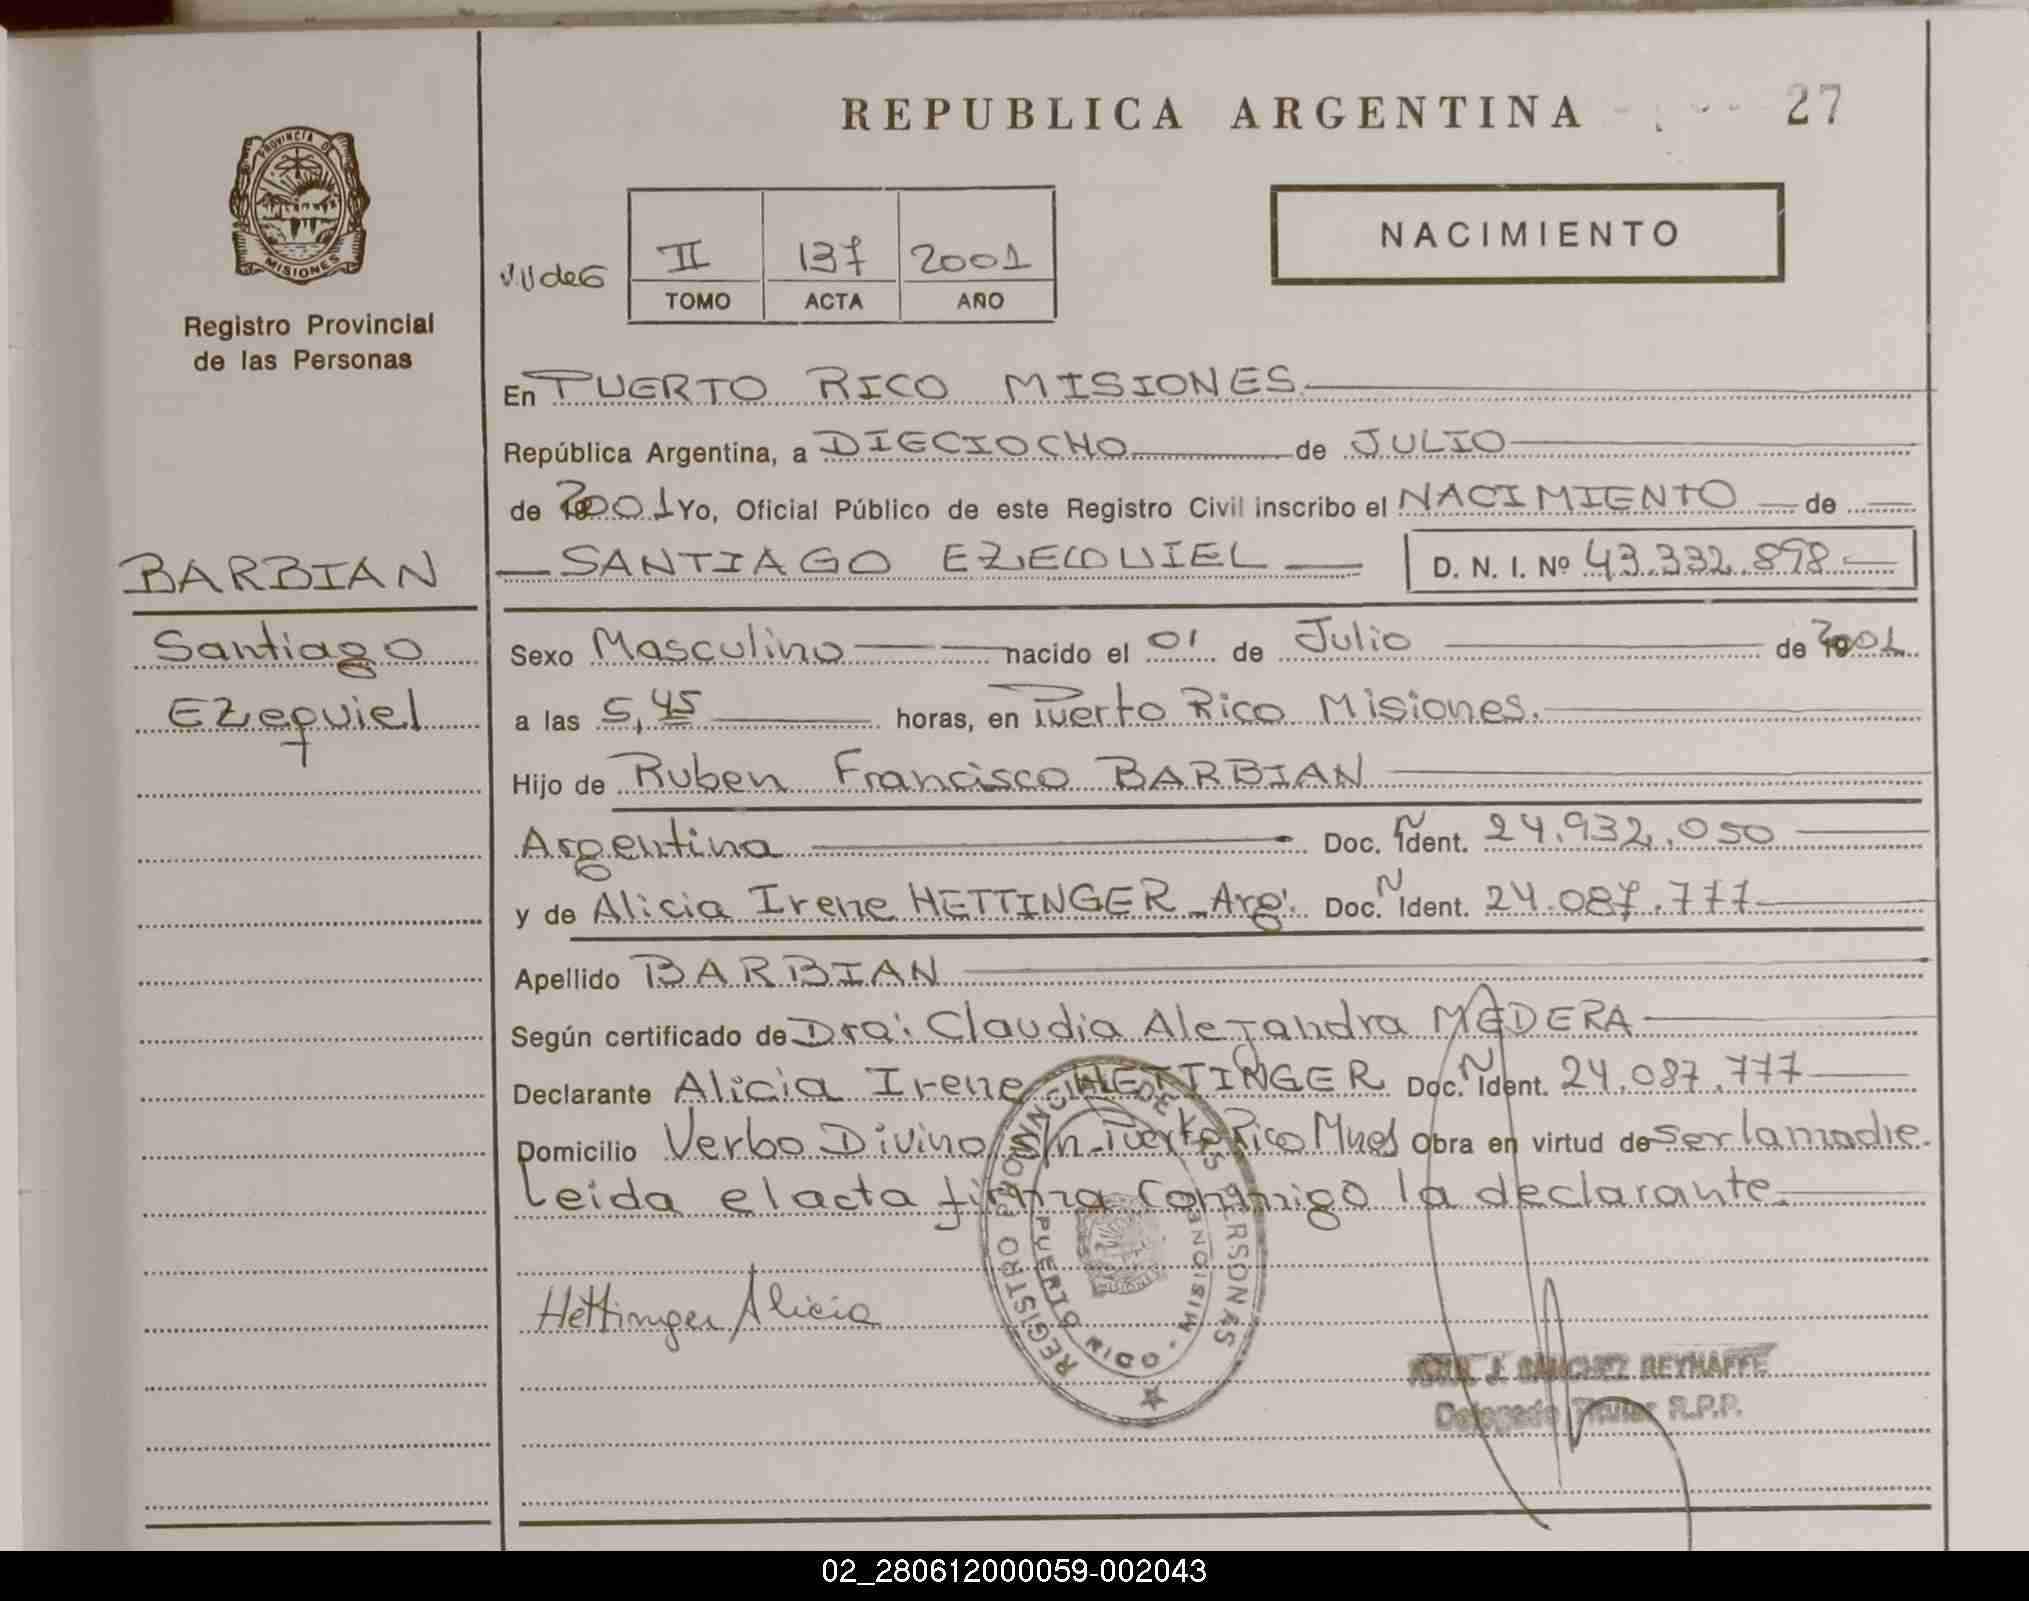 REPUBLICA ARGENTINA
27
PROVINCIA DE
MISIONES
Registro Provincial
de las Personas
NACIMIENTO
II 137 2001
TOMO ACTA AÑO
En PUERTO RICO MISIONES.
República Argentina, a DIECIOCHO de JULIO
de 2001 Yo, Oficial Público de este Registro Civil inscribo el NACIMIENTO de
BARBIAN
SANTIAGO EZEQUIEL D. N. I. Nº 43.332.898
Santiago
Ezequiel
Sexo Masculino nacido el 01 de Julio de 2001
a las 5,45 horas, en Puerto Rico Misiones.
Hijo de Ruben Francisco BARBIAN
Argentina Doc. Ñ Ident. 24.932.050
y de Alicia Irene HETTINGER - Arg. Doc. N Ident. 24.087.777
Apellido BARBIAN
Según certificado de Dra: Claudia Alejandra MADERA
Declarante Alicia Irene HETTINGER Doc. Ñ Ident. 24.087.777
Domicilio Verbo Divino s/n - Puerto Rico Mnes Obra en virtud de ser la madre.
Leida el acta firma conmigo la declarante.
Hettinger Alicia
REGISTRO PROVINCIAL DE LAS PERSONAS
PUERTO RICO - MISIONES
J. SANCHEZ REYNAFFE
Delegado Titular R.P.P.
02_280612000059-002043